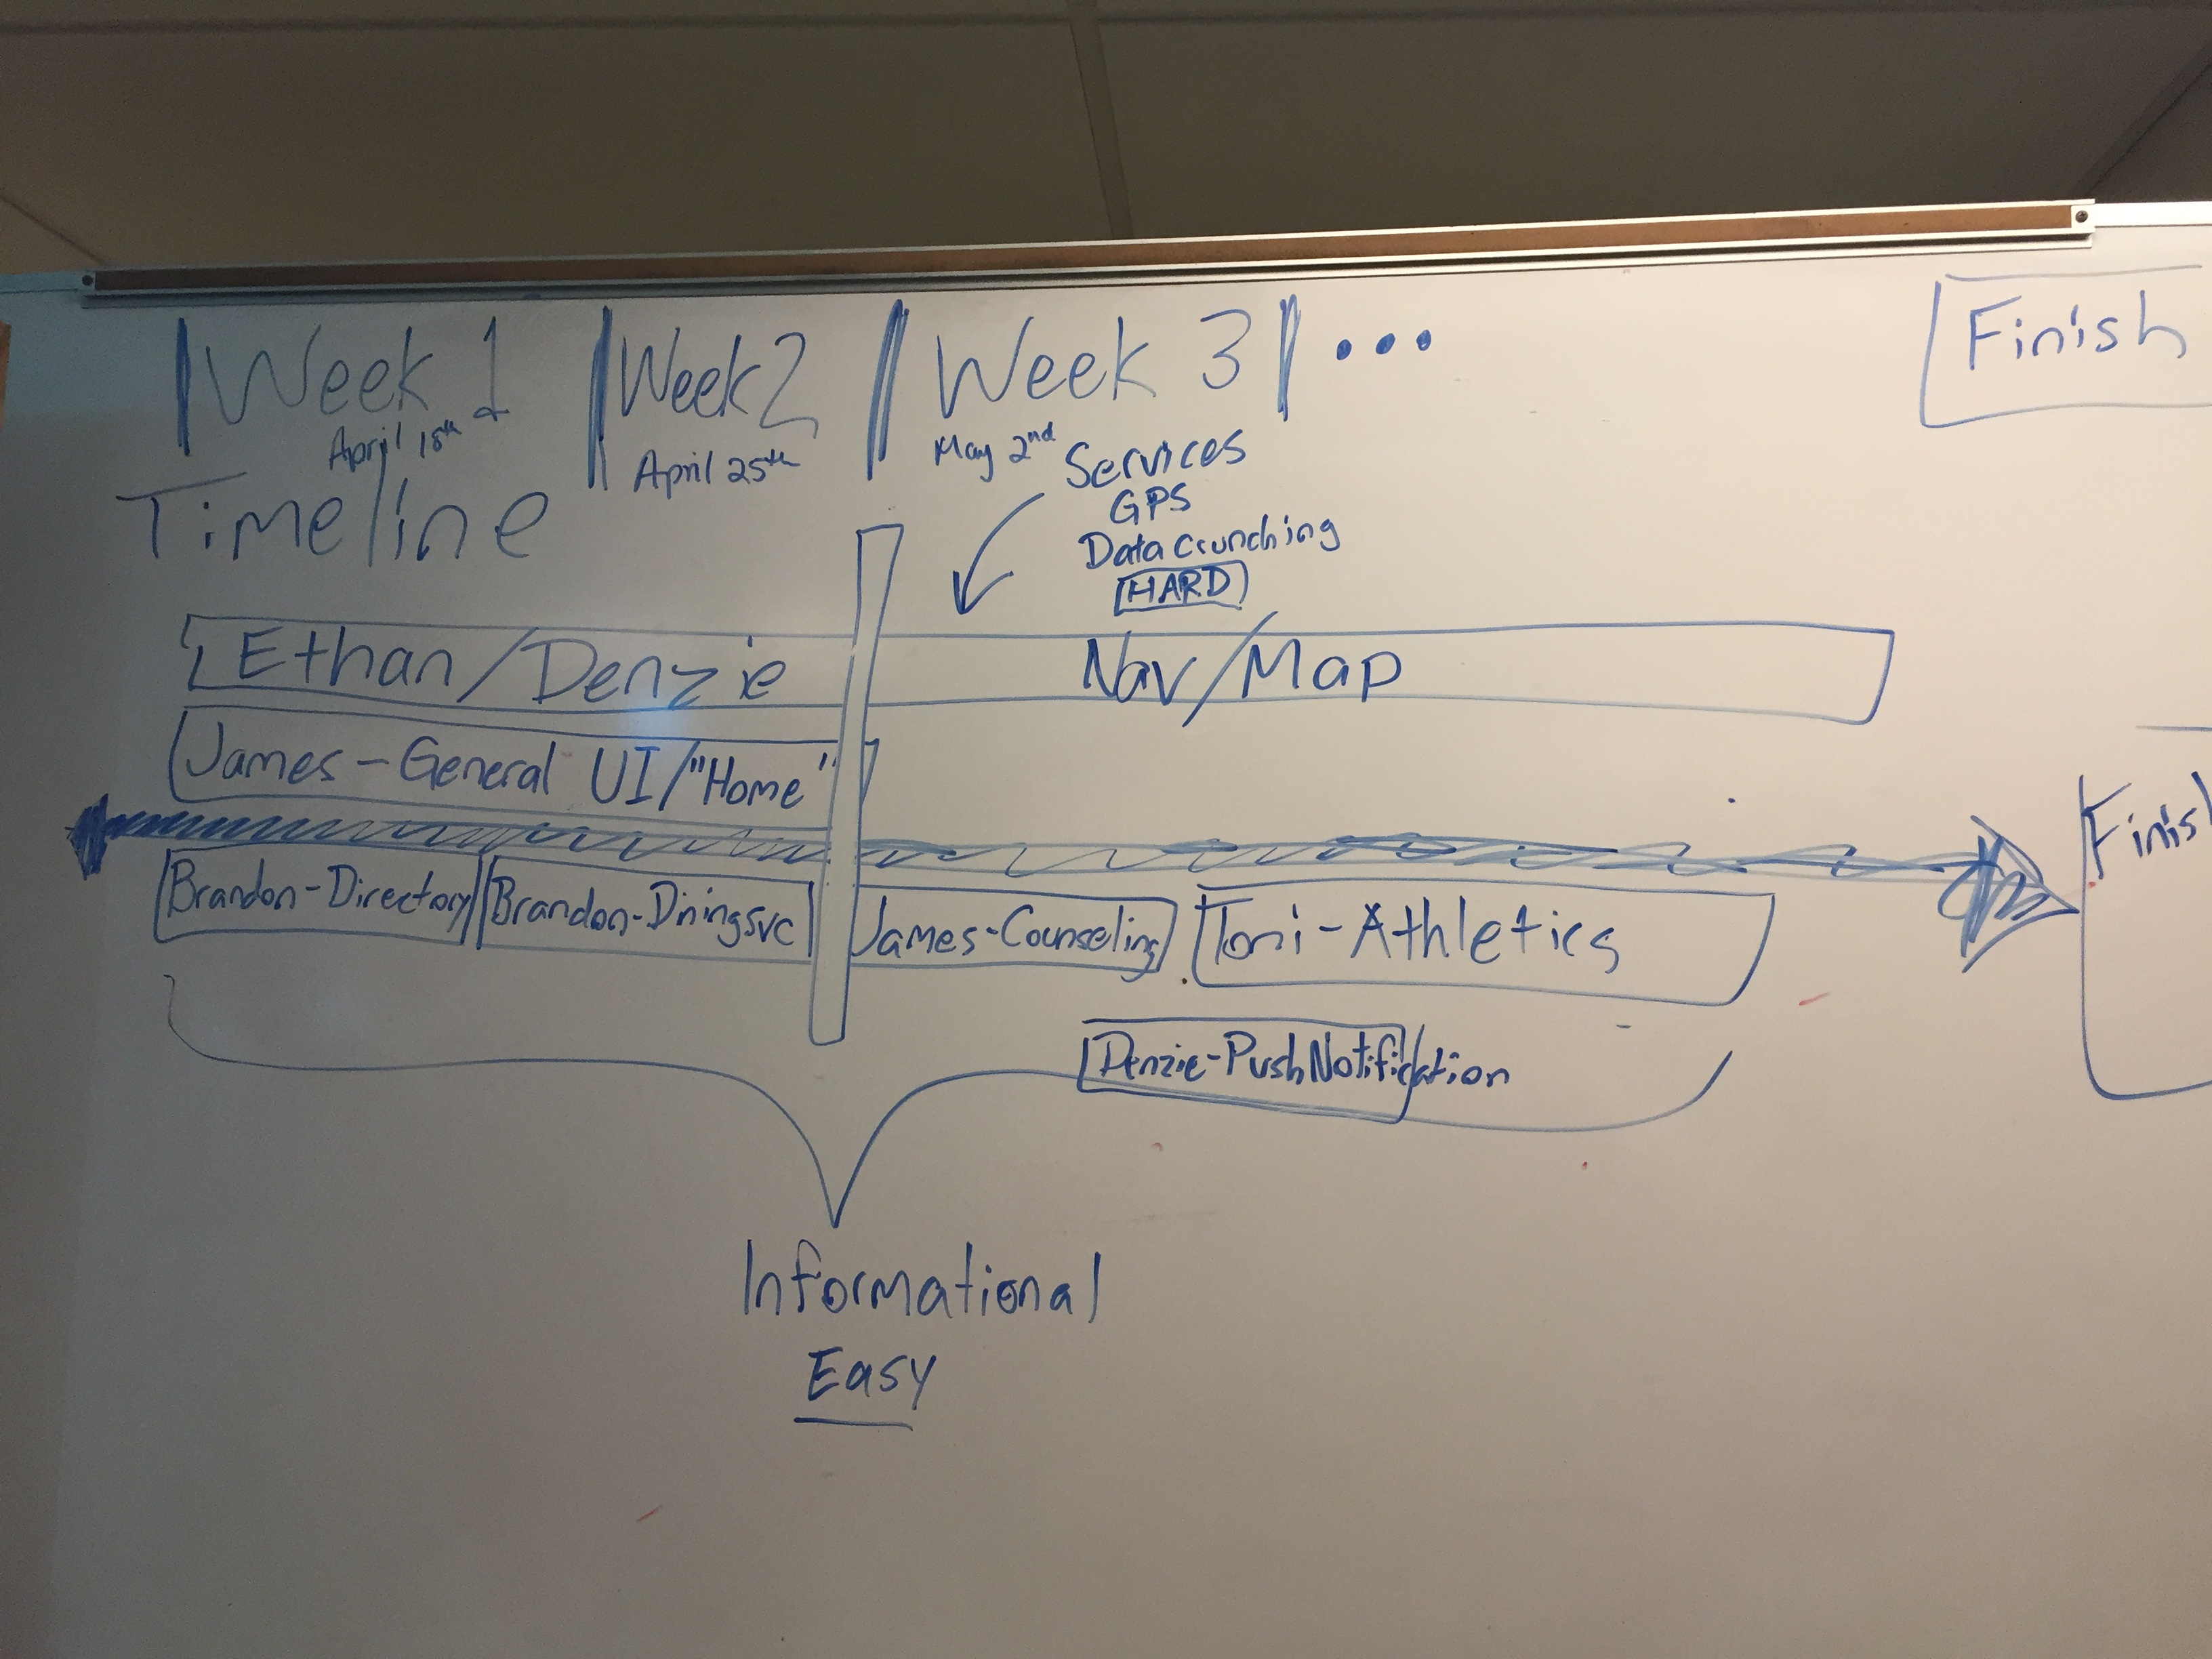 Week 1
April 18th
Week 2
April 25th
Week 3
May 2nd
...
Finish
Timeline
Services
GPS
Data Crunching
HARD
Ethan/Denzie
Nav/Map
James - General UI/"Home"
Finish
Brandon - Directory
Brandon - Diningsvc
James - Counseling
Toni - Athletics
Denzie - Push Notification
Informational
Easy